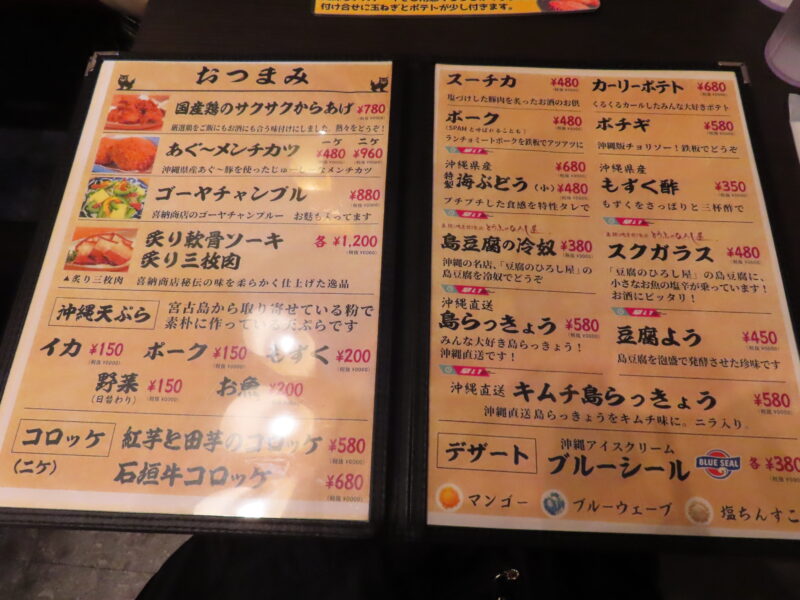 付け合せに玉ねぎとポテトが少し付きます。
おつまみ
国産鶏のサクサクからあげ ¥780
厳選鶏をご飯にもお酒にも合う味付けにしました。熱々をどうぞ!
あぐーメンチカツ 一ケ ¥480 二ケ ¥960
沖縄県産あぐ〜豚を使ったじゅーしーなメンチカツ
ゴーヤチャンプル ¥880
喜納商店のゴーヤチャンプルー お麩も入ってます
炙り軟骨ソーキ
炙り三枚肉 各 ¥1,200
▲炙り三枚肉 喜納商店秘伝の味を柔らかく仕上げた逸品
沖縄天ぷら 宮古島から取り寄せている粉で
素朴に作っている天ぷらです
イカ ¥150 ポーク ¥150 もずく ¥200
野菜 ¥150 お魚 ¥200
(日替わり)
コロッケ 紅芋と田芋のコロッケ ¥580
(二ケ) 石垣牛コロッケ ¥680
スーチカ ¥480
塩づけした豚肉を炙ったお酒のお供
カーリーポテト ¥680
くるくるカールしたみんな大好きポテト
ポーク ¥480
(SPAMとよばれることも!)
ランチョミートポークを鉄板でアツアツに
ポチギ ¥580
沖縄版チョリソー!鉄板でどうぞ
早い!
沖縄県産
特製 海ぶどう ¥680
(小) ¥480
プチプチした食感を特性タレで
沖縄県産
もずく酢 ¥350
もずくをさっぱりと三杯酢で
早い!
早い!
島豆腐の冷奴 ¥380
沖縄の名店、「豆腐のひろし屋」の
島豆腐を冷奴でどうぞ
スクガラス ¥480
「豆腐のひろし屋」の島豆腐に、
小さなお魚の塩辛が乗っています!
お酒にピッタリ!
早い!
沖縄直送
島らっきょう ¥580
みんな大好き島らっきょう!
沖縄直送です!
早い!
豆腐よう ¥450
島豆腐を泡盛で発酵させた珍味です
早い!
沖縄直送 キムチ島らっきょう ¥580
沖縄直送島らっきょうをキムチ味に。ニラ入り。
デザート 沖縄アイスクリーム
ブルーシール BLUE SEAL 各 ¥380
マンゴー ブルーウェーブ 塩ちんすこ